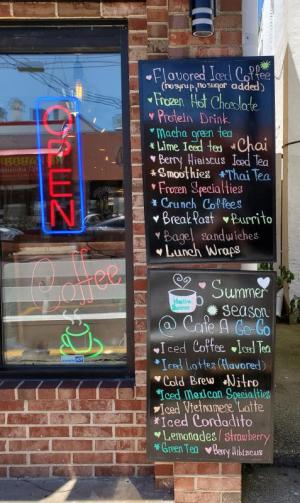 OPEN
Coffee
Flavored Iced Coffee
(no syrup, no sugar added)
Frozen Hot Chocolate
Protein Drink
Macha green tea
Lime Iced tea Chai
Berry Hibiscus Iced Tea
Smoothies Thai Tea
Frozen Specialties
Crunch Coffees
Breakfast Burrito
Bagel sandwiches
Lunch Wraps
Summer
season
@ Cafe A Go-Go
Iced Coffee Iced Tea
Iced Lattes (flavored)
Cold Brew Nitro
Iced Mexican Specialties
Iced Vietnamese Latte
Iced Cordadito
Lemonades / strawberry
Green Tea Berry Hibiscus